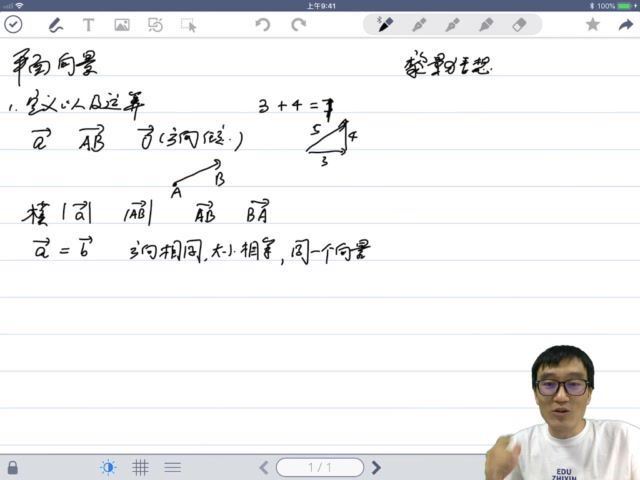 上午9:41
100%
平面向量
数学思想
1. 定义以及运算
3 + 4 = 7
a⃗ AB⃗ 0⃗ (方向任意.)
5
4
3
A
B
模 |a⃗| |AB⃗| AB⃗ BA⃗
a⃗ = b⃗ 方向相同,大小相等,同一个向量
1 / 1
EDU
ZHIXIN